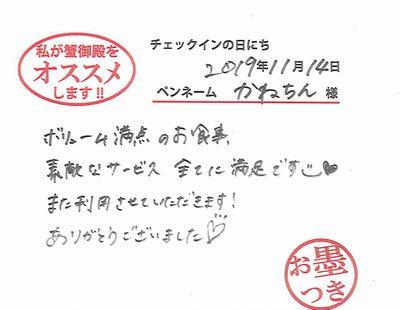 私が蟹御殿を
オススメ
します!!
チェックインの日にち
2019年11月14日
ペンネーム かねちん 様
ボリューム満点のお食事、
素敵なサービス 全てに満足です
また利用させていただきます!
ありがとうございました♡
お墨
つき